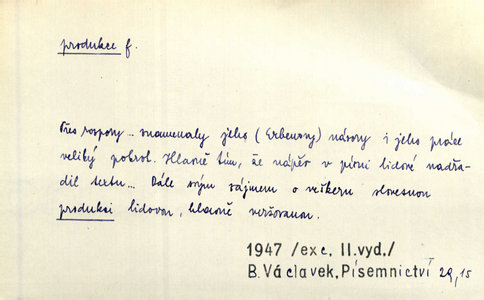 produkce f.
Přes rozpory... znamenaly jeho (Erbenovy) názory i jeho práce
veliký pokrok. Hlavně tím, že nápěv v písni lidové nadřa-
dil textu... Dále svým zájmem o veškeru slovesnou
produkci lidovou, hlavně veršovanou.
1947 /exc. II.vyd./
B.Václavek,Písemnictví 29,15